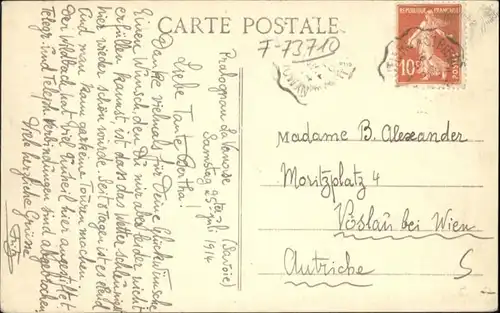 CARTE POSTALE
F-73710
Pralognan la Vanoise (Savoie)
Samstag 25ter Juli 1914
Liebe Tante Bertha!
Danke vielmals für Deine Glückwünsche
Einen Wunsch den Du mir aber leider nicht
erfüllen kannst ist dass das Wetter schleunigst
hier wieder schön würde. Seit 8 Tagen ist es elend
und man kann gar keine Touren machen.
Der Weltbach hat viel Unheil hier angestiftet
Telegr und Teleph. Verbindungen sind abgebrochen
Viele herzliche Grüsse
REPUBLIQUE FRANÇAISE
10c
POSTES
Madame B. Alexander
Moritzplatz 4
Vöslau bei Wien
Autriche